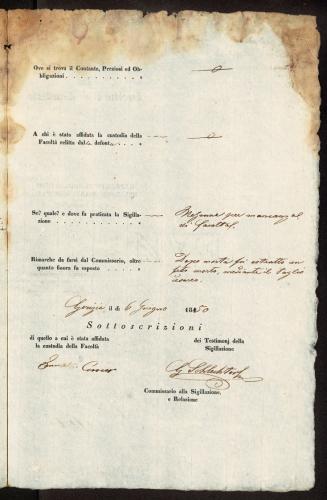 Ove si trova il Contante, Preziosi ed Ob-
bligazioni . . . . . . . . . . „
A chi è stata affidata la custodia della
Facoltà relitta dal defont . . . „
Se? quale? e dove fu praticata la Sigilla-
zione . . . . . . . . . . . „ Nessuna per mancanza
di
Rimarche da farsi dal Commissario, oltre
quanto finora fu esposto . . . . „ Dopo morta fu estratto un
morto, mediante il Taglio
Gorizia il dì 6 Giugno 1850
Sottoscrizioni
di quello a cui è stata affidata
la custodia della Facoltà
dei Testimonj della
Sigillazione
Commissario alla Sigillazione,
e Relazione